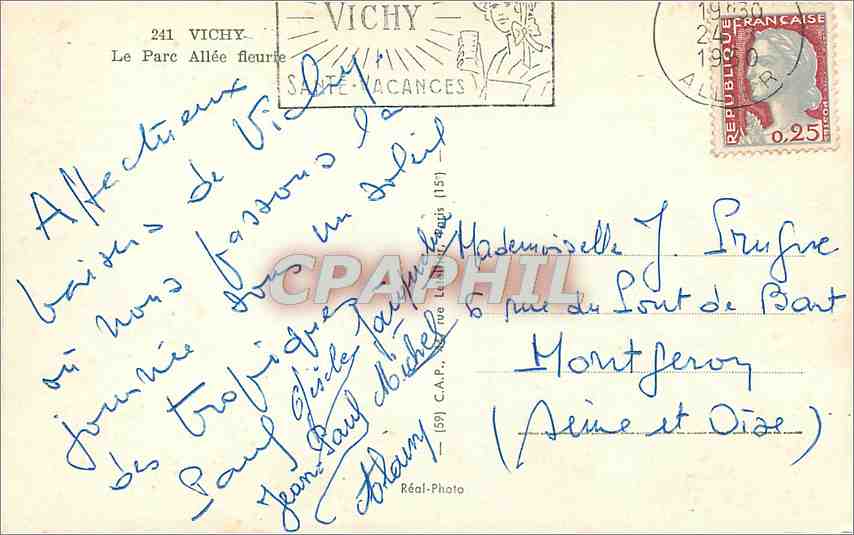 241 VICHY
Le Parc Allée fleurie
VICHY
SANTÉ-VACANCES
19H30
24
1960
ALLIER
REPUBLIQUE FRANCAISE
0,25
Affectueux
baisers de Vichy,
où nous passons la
journée sous un soleil
des tropiques
Paul Gisèle Jacqueline
Jean-Paul Michel
Alain
Mademoiselle J. Prugne
6 rue du Pont de Bart
Montgeron
(Seine et Oise)
(59) C.A.P., rue Letellier, Paris (15e)
Réal-Photo
CPAPHIL